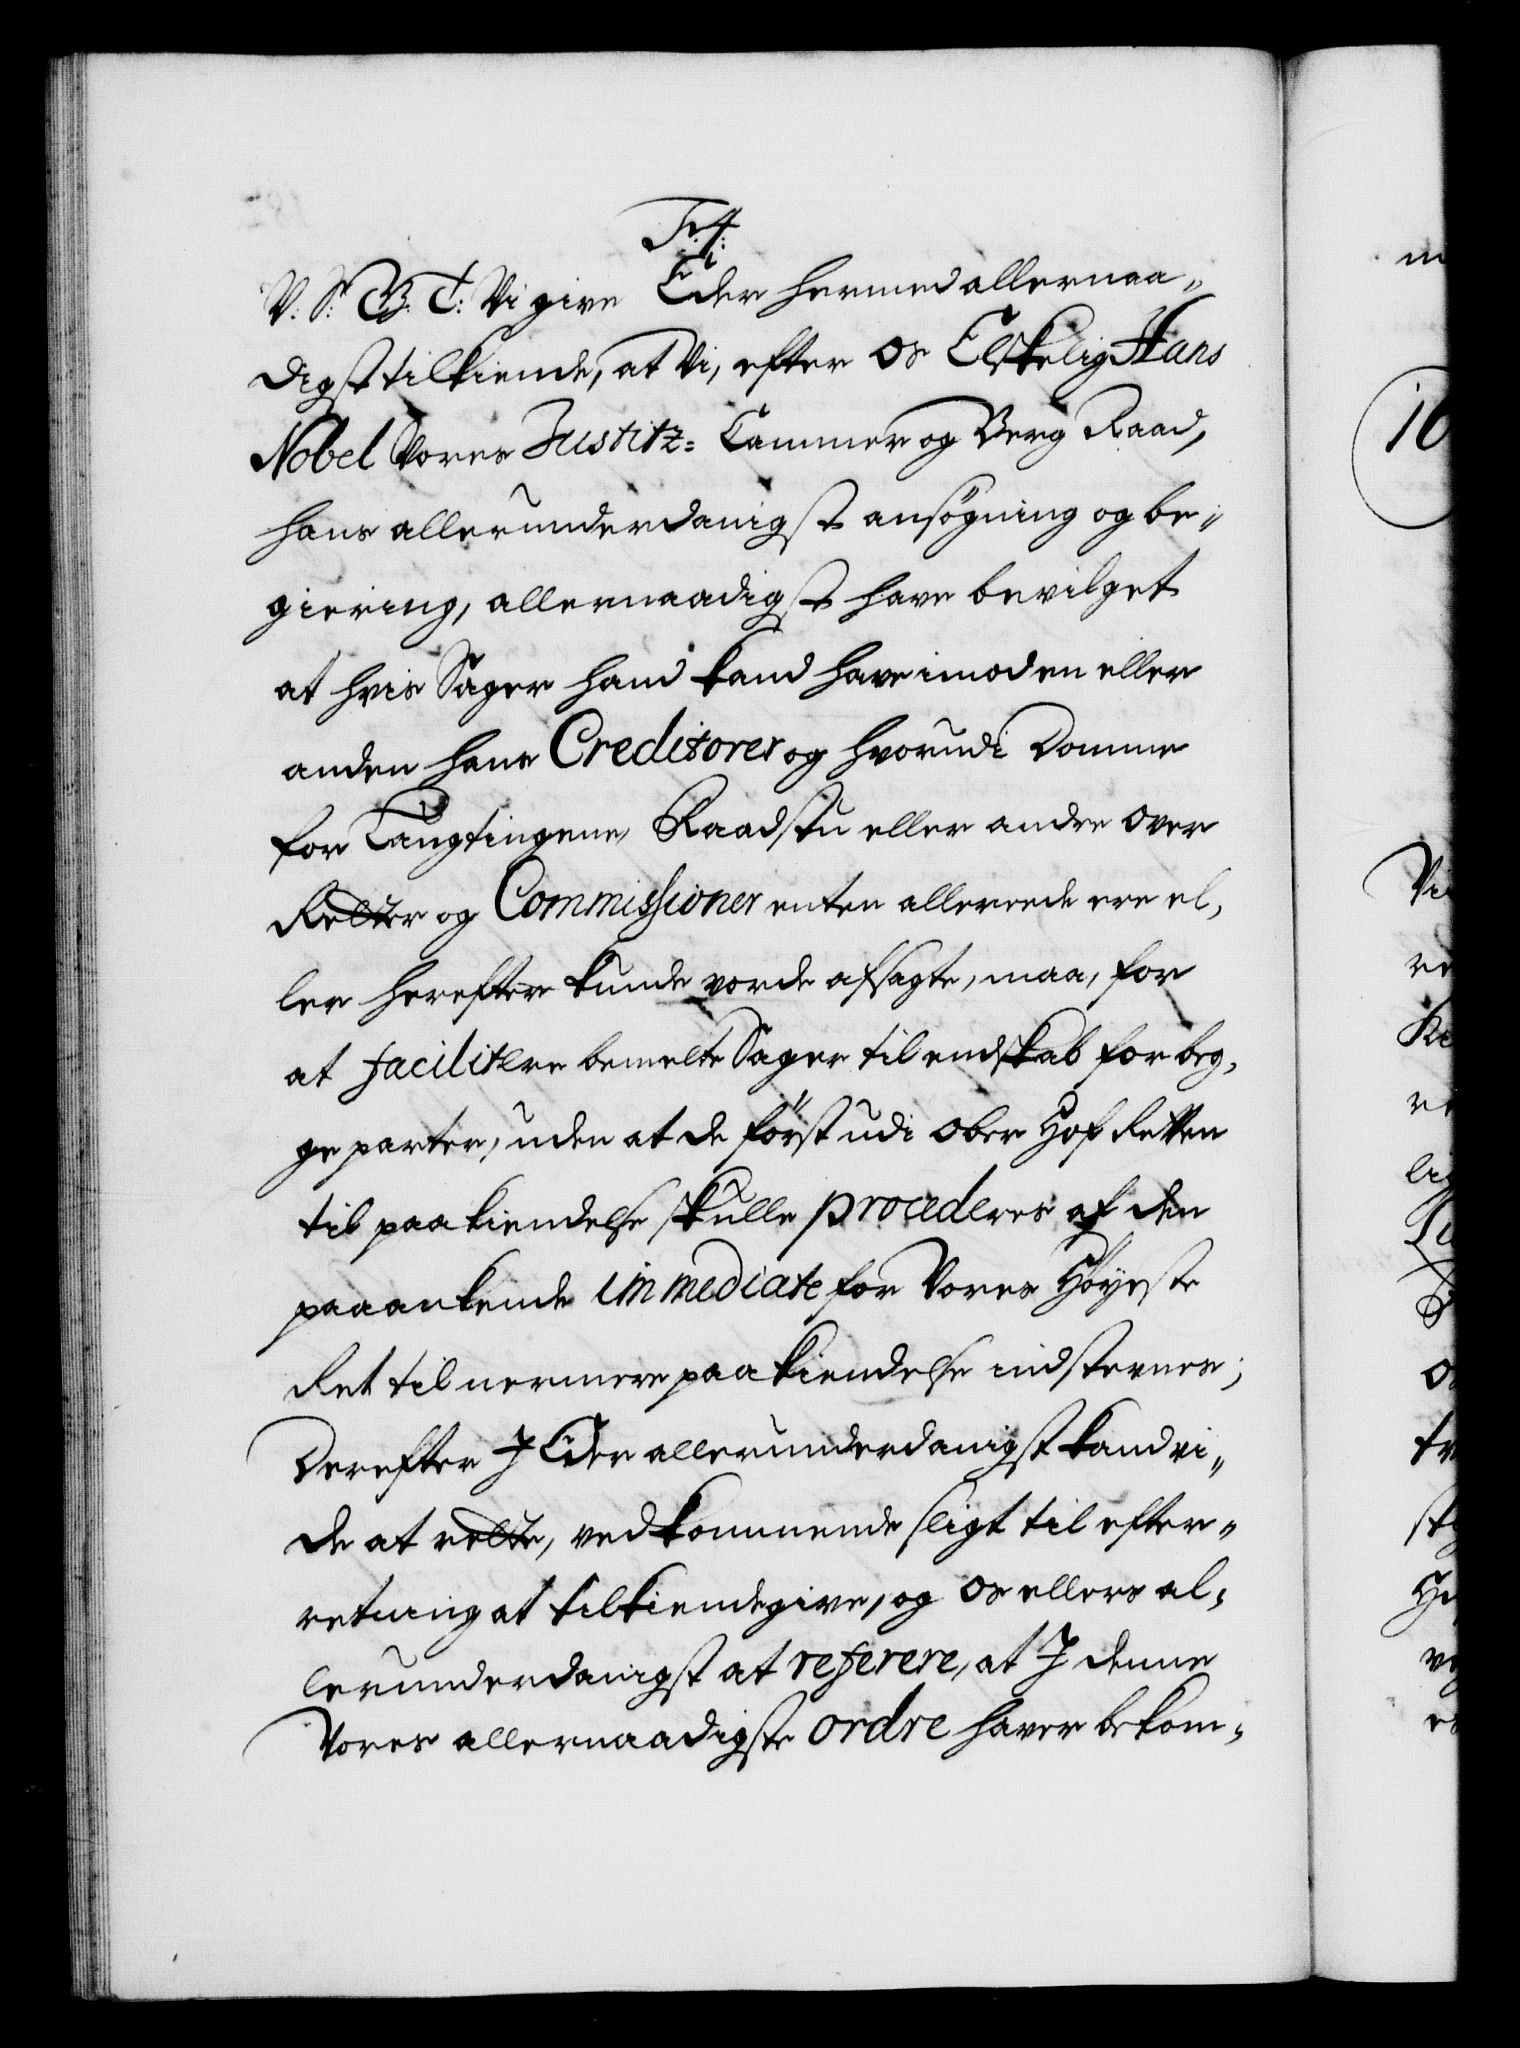 F: 4:
V: S: G: T: Vi give Eder hermed allernaa-
digst tilkiende, at Vi, efter Os Elskelig Hans
Nobel Vores Justitz- Cammer og Berg Raad,
hans allerunderdanigst ansøgning og be-
giering, allernaadigst have bevilget
at hvis Sager hand kand have imod en eller
anden hans Creditorer og hvorudi Domme
for Laugtingene, Raadstu eller andre over
Retter og Commissioner enten allereede ere el-
ler herefter kunde vorde afsagte, maa, for
at facilitere bemelte Sager til endskab for beg-
ge parter, uden at de først udi Ober Hof Retten
til paakiendelse skulle procederes af den
paaankende immediate for Vores Høyeste
Ret til nermere paakiendelse indstevnes;
Derefter I Eder allerunderdanigst kand vi-
de at rette, vedkommende sligt til efter-
retning at tilkiendegive, og Os ellers al-
lerunderdanigst at referere, at I denne
Vores allernaadigste ordre haver bekom-
10